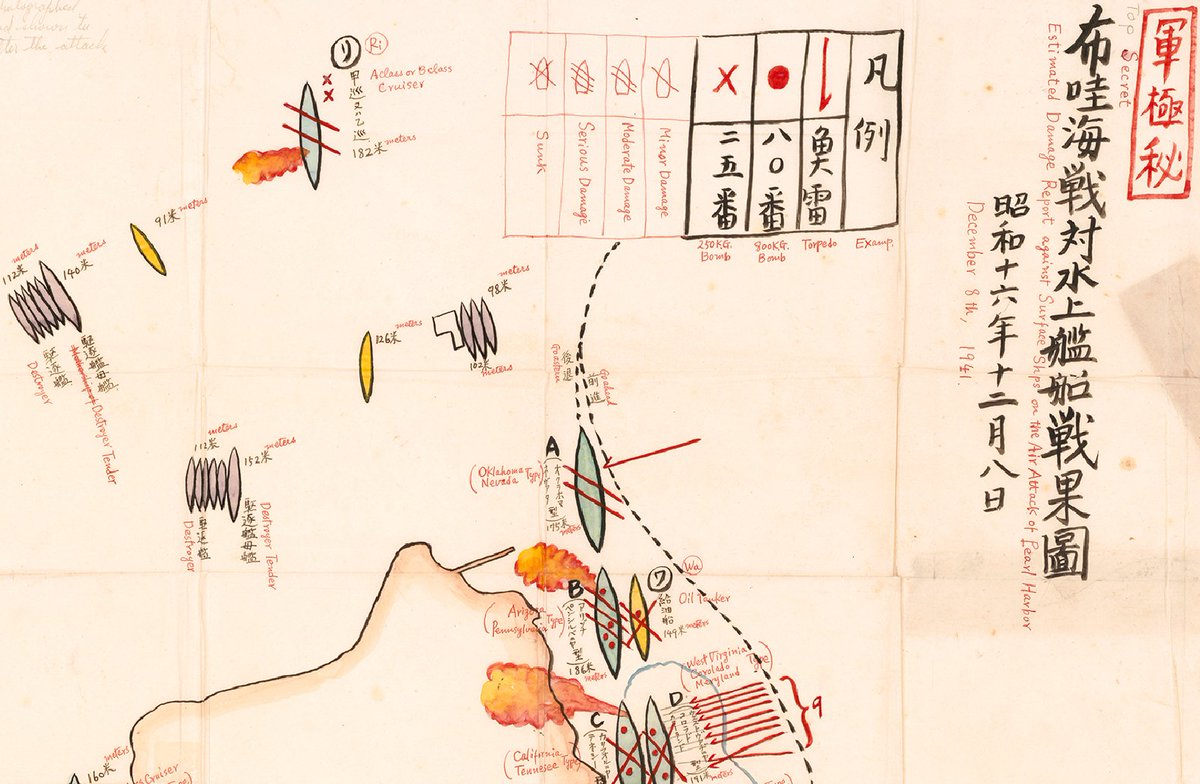 軍極秘
Top Secret
布哇海戦対水上艦船戦果圖
Estimated Damage Report against Surface Ships on the Air Attack of Pearl Harbor
昭和十六年十二月八日
December 8th, 1941.
凡例
魚雷
八〇番
二五番
Minor Damage
Moderate Damage
Serious Damage
Sunk
Examp.
Torpedo
800KG. Bomb
250KG. Bomb
リ
Ri
甲巡又ハ乙巡
A class or B class
Cruiser
182米 meters
91米 meters
112米 meters
140米 meters
駆逐艦
Destroyer
駆逐艦母艦
Destroyer Tender
126米 meters
98米 meters
102米 meters
後退
Goastern
前進
Goahead
112米 meters
152米 meters
駆逐艦
Destroyer
駆逐艦母艦
Destroyer Tender
A
(Oklahoma
Nevada Type)
175米 meters
B
(Arizona
Pennsylvania Type)
186米 meters
ワ
Wa
給油船
Oil Tanker
149米 meters
C
(California
Tennesee Type)
D
(West Virginia
Corolado
Maryland Type)
9
191米 meters
160米 meters
Cruiser